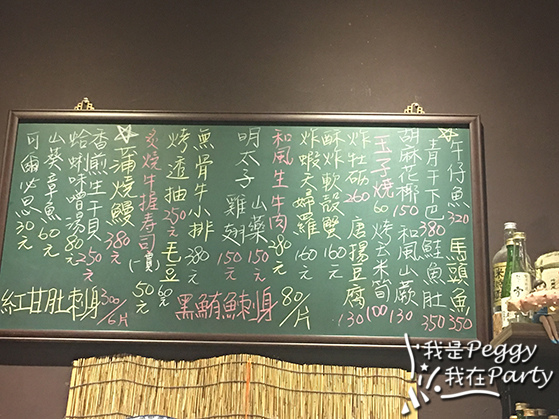 午仔魚 320 馬頭魚 350
青干下巴 380 鮭魚肚 350
胡麻花椰 150 和風山蕨 130
玉子燒 60 烤玄米筍 100
炸牡蠣 260 唐揚豆腐 130
酥炸軟殼蟹 160元
炸蝦天婦羅 160元
和風生牛肉 280元
明太子 山藥 150元
雞翅 150元
無骨牛小排 380元
烤透抽 250元 毛豆 60元
炙燒牛握壽司 一貫 50元
☆蒲燒鰻 380元
香煎生干貝 250元
蛤蜊味噌湯 80元
山葵章魚 60元
可爾必思 30元
紅甘肚刺身 300/6片
黑鮪魚刺身 80/片
我是Peggy
我在Party